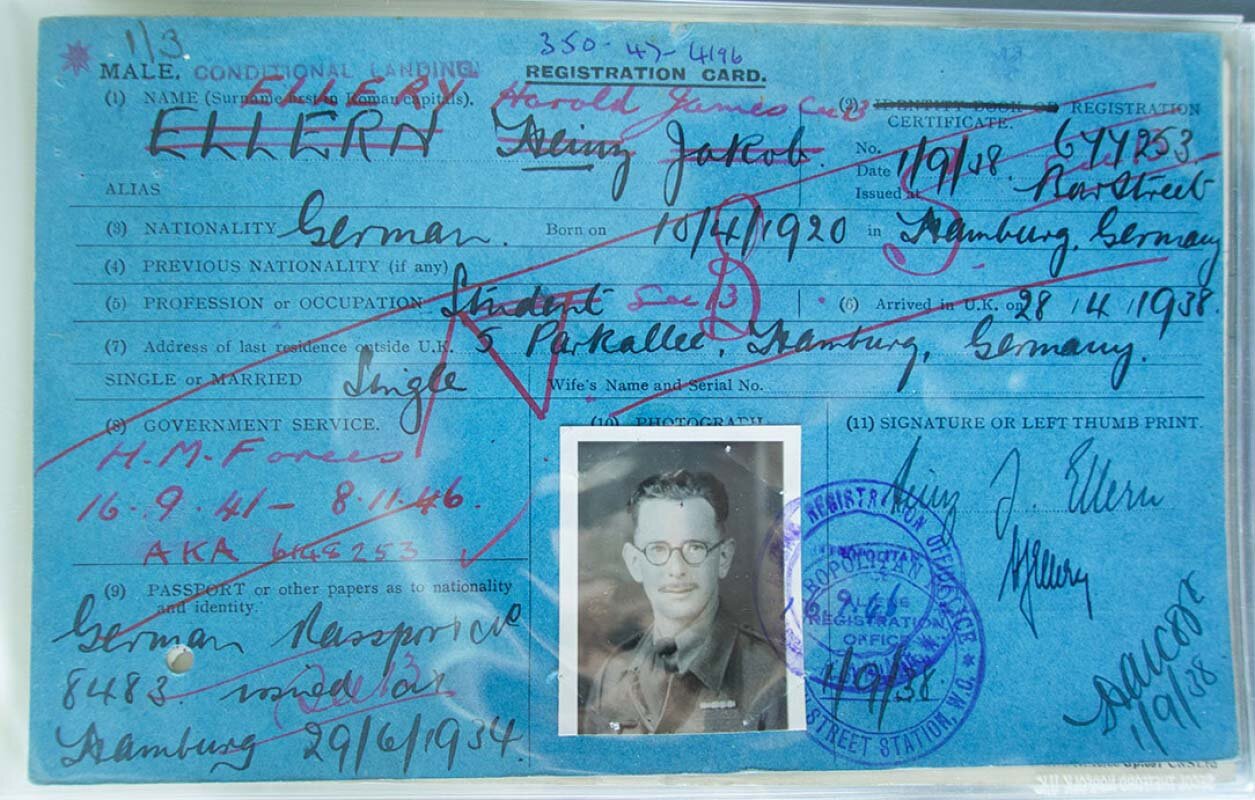 1/3
350-47-4196
MALE. CONDITIONAL LANDING. REGISTRATION CARD.
ELLERY Harold James See 13
(1) NAME (Surname first in Roman capitals). (2) IDENTITY BOOK OR REGISTRATION
CERTIFICATE.
ELLERN Heinz Jakob. No. 677253.
Date 1/9/38.
ALIAS Issued at Bow Street
(3) NATIONALITY German. Born on 10/4/1920 in Hamburg, Germany
(4) PREVIOUS NATIONALITY (if any)
(5) PROFESSION or OCCUPATION Student See 13 (6) Arrived in U.K. on 28/4/1938.
(7) Address of last residence outside U.K. 5 Parkallee, Hamburg, Germany.
SINGLE or MARRIED Single Wife's Name and Serial No.
(8) GOVERNMENT SERVICE. (10) PHOTOGRAPH (11) SIGNATURE OR LEFT THUMB PRINT.
H.M. Forces
16.9.41 - 8.11.46.
AKA 6148253
Heinz J. Ellern
HJEllery
(9) PASSPORT or other papers as to nationality
and identity.
German Passport No
8483 issued at
See 13
Hamburg 29/6/1934.
REGISTRATION OFFICE
REGISTRATION
OFFICE
1/9/38.
STREET STATION, W.C.
1/9/38